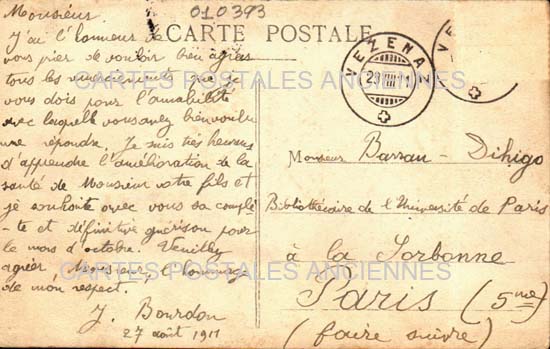 Monsieur.
010393
CARTE POSTALE
J'ai l'honneur de
vous prier de vouloir bien agréer
tous les remerciements que je
vous dois pour l'amabilité
avec laquelle vous avez bien voulu
me répondre. Je suis très heureux
d'apprendre l'amélioration de la
santé de Monsieur votre fils et
je souhaite avec vous sa complè
-te et définitive guérison pour
le mois d'octobre. Veuillez
agréer, Monsieur, l'hommage
de mon respect.
J. Bourdon
27 août 1911
VEZENAZ
29 VIII 11
VE
Monsieur Barrau-Dihigo
Bibliothécaire de l'Université de Paris
à la Sorbonne
Paris (5me)
(faire suivre)
CARTES POSTALES ANCIENNES
CARTES POSTALES ANCIENNES